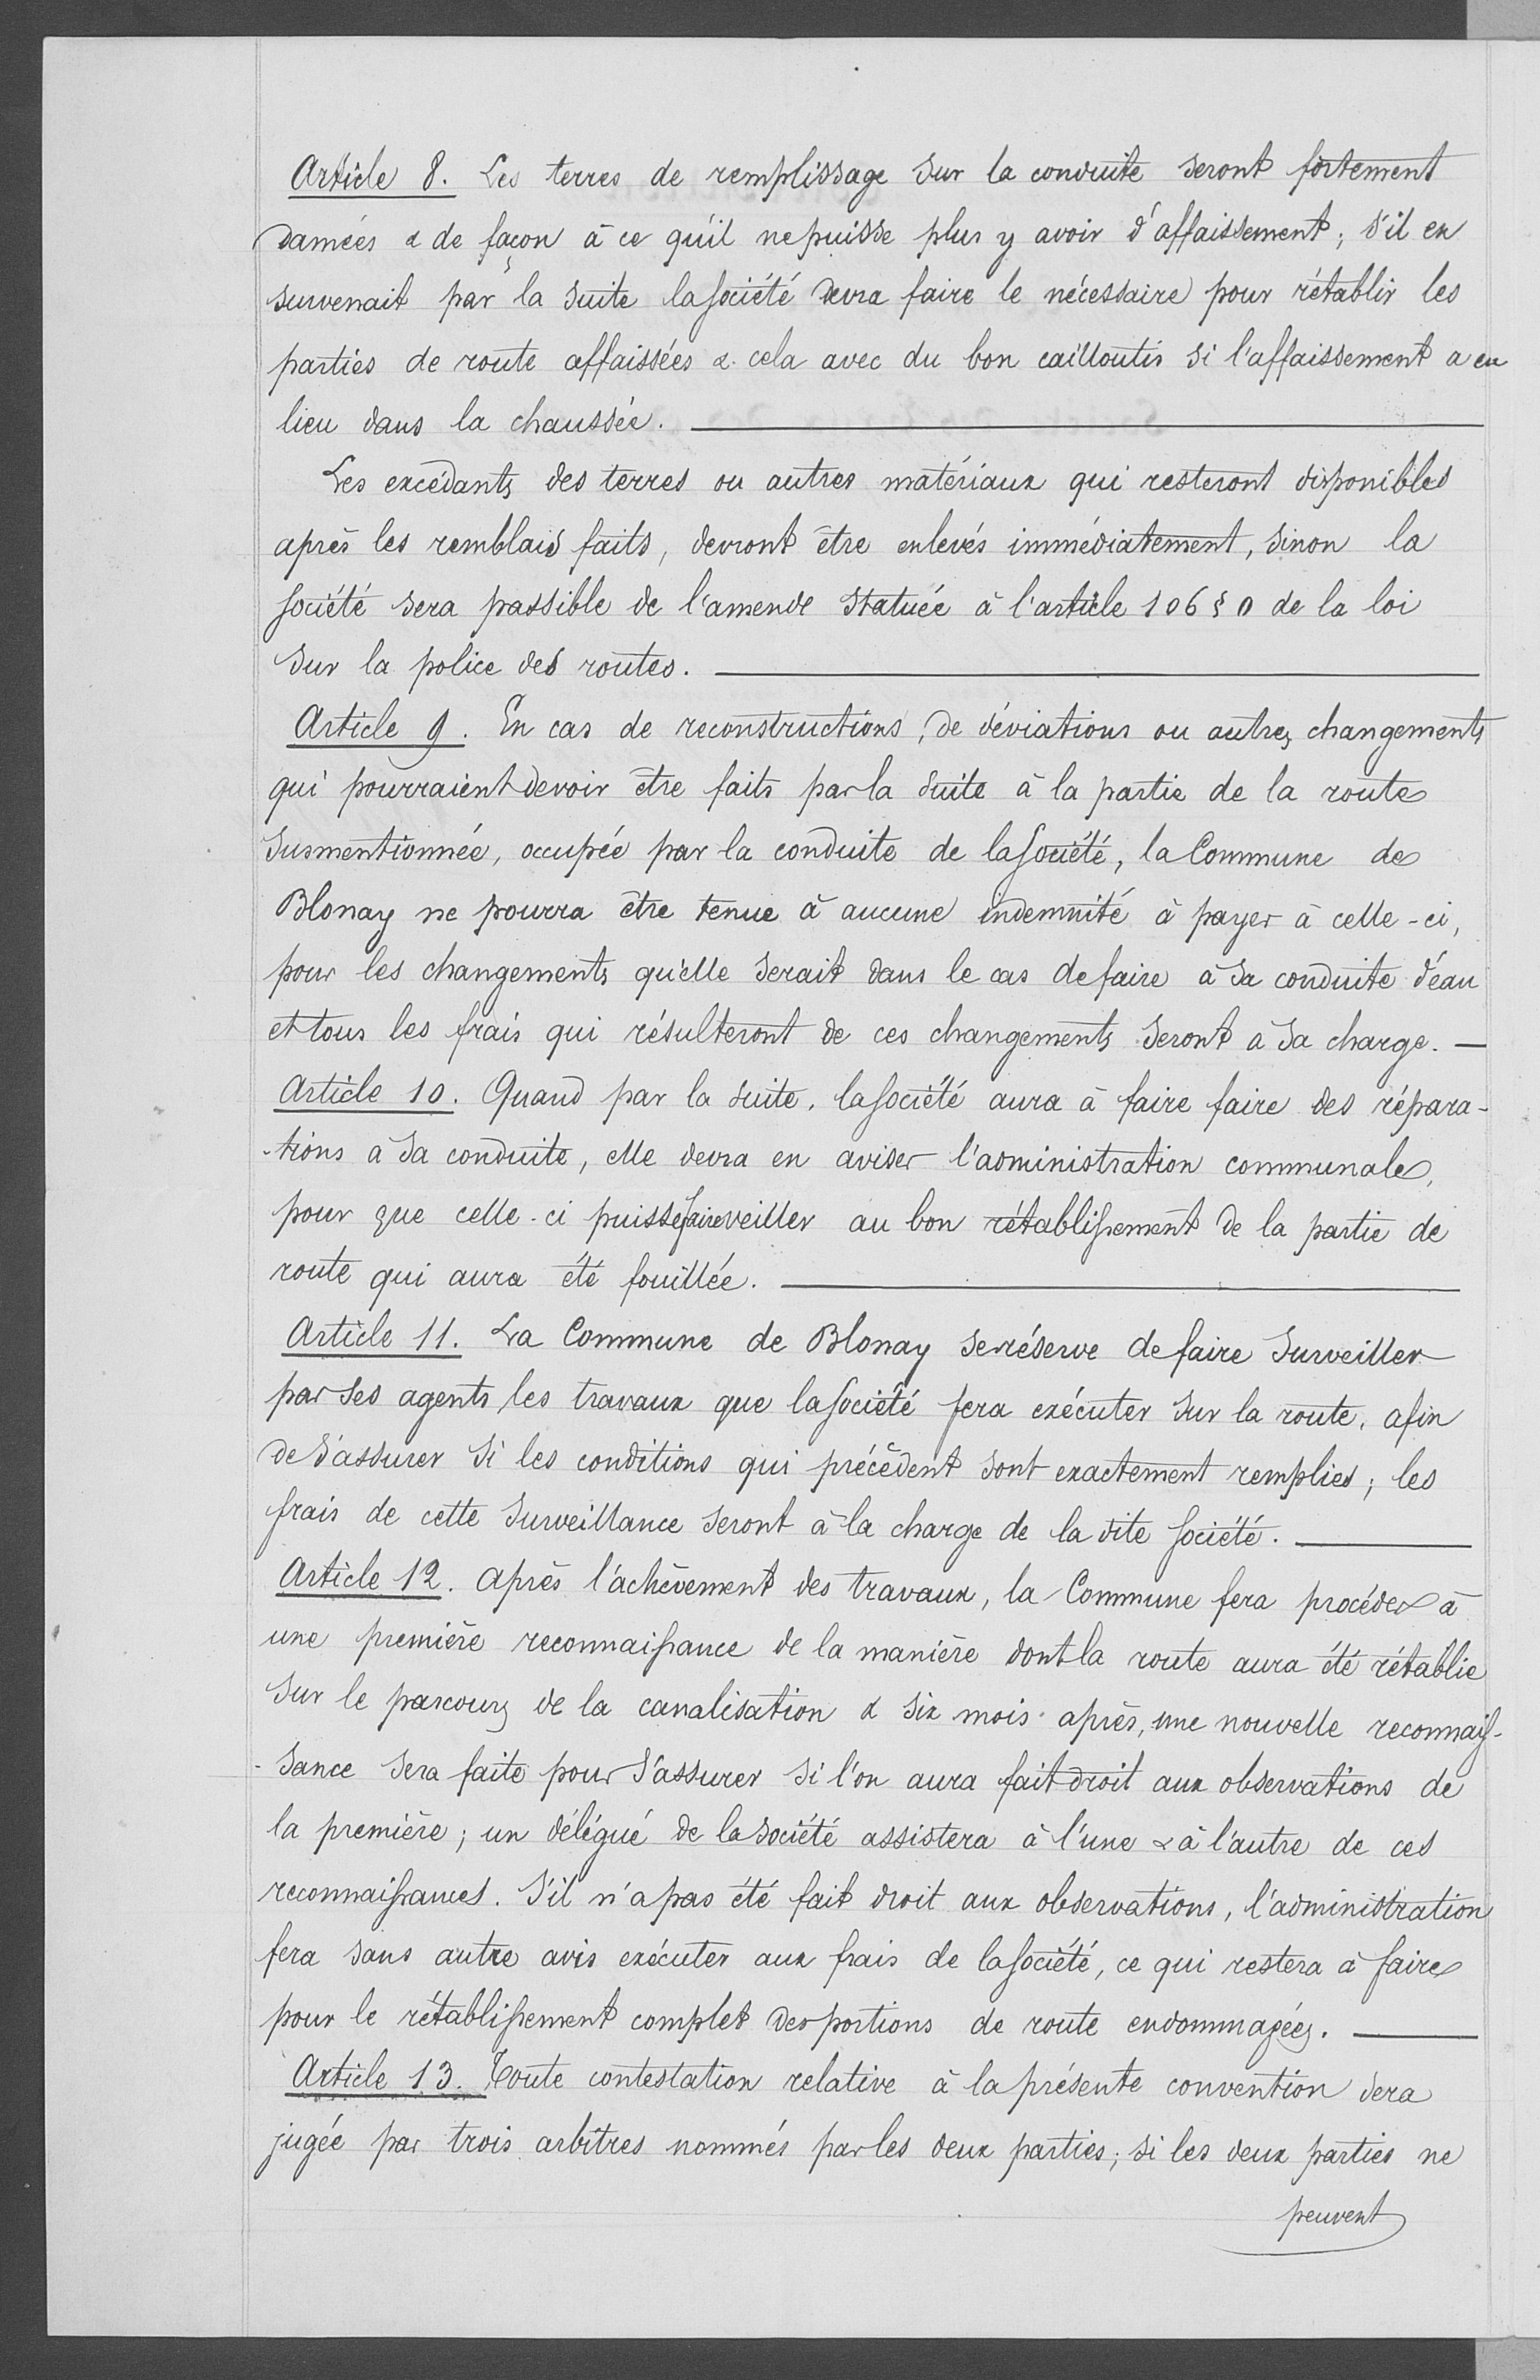 Article 8. Les terres de remplissage sur la conduite seront fortement
damées & de façon à ce qu'il ne puisse plus y avoir d'affaissement; s'il en
survenait par la suite la société devra faire le nécessaire pour rétablir les
parties de route affaissées & cela avec du bon cailloutis si l'affaissement a eu
lieu dans la chaussée.
Les excédants des terres ou autres matériaux qui resteront disponibles
après les remblais faits, devront être enlevés immédiatement, sinon la
société sera passible de l'amende statuée à l'article 106 § 0 de la loi
sur la police des routes.
Article 9. En cas de reconstructions, de déviations ou autres changements
qui pourraient devoir être faits par la suite à la partie de la route
susmentionnée, occupée par la conduite de la société, la Commune de
Blonay ne pourra être tenue à aucune indemnité à payer à celle-ci,
pour les changements qu'elle serait dans le cas de faire à sa conduite d'eau
et tous les frais qui résulteront de ces changements seront à sa charge. —
Article 10. Quand par la suite, la société aura à faire faire des répara-
-tions à sa conduite, elle devra en aviser l'administration communale,
pour que celle-ci puisse faire veiller au bon rétablissement de la partie de
route qui aura été fouillée.
Article 11. La Commune de Blonay se réserve de faire surveiller
par ses agents les travaux que la société fera exécuter sur la route, afin
de s'assurer si les conditions qui précèdent sont exactement remplies; les
frais de cette surveillance seront à la charge de la dite société.
Article 12. Après l'achèvement des travaux, la Commune fera procéder à
une première reconnaissance de la manière dont la route aura été rétablie
sur le parcours de la canalisation & six mois après, une nouvelle reconnais-
-sance sera faite pour s'assurer si l'on aura fait droit aux observations de
la première; un délégué de la société assistera à l'une & à l'autre de ces
reconnaissances. S'il n'a pas été fait droit aux observations, l'administration
fera sans autre avis exécuter aux frais de la société, ce qui restera à faire
pour le rétablissement complet des portions de route endommagées.
Article 13. Toute contestation relative à la présente convention sera
jugée par trois arbitres nommés par les deux parties; si les deux parties ne
peuvent